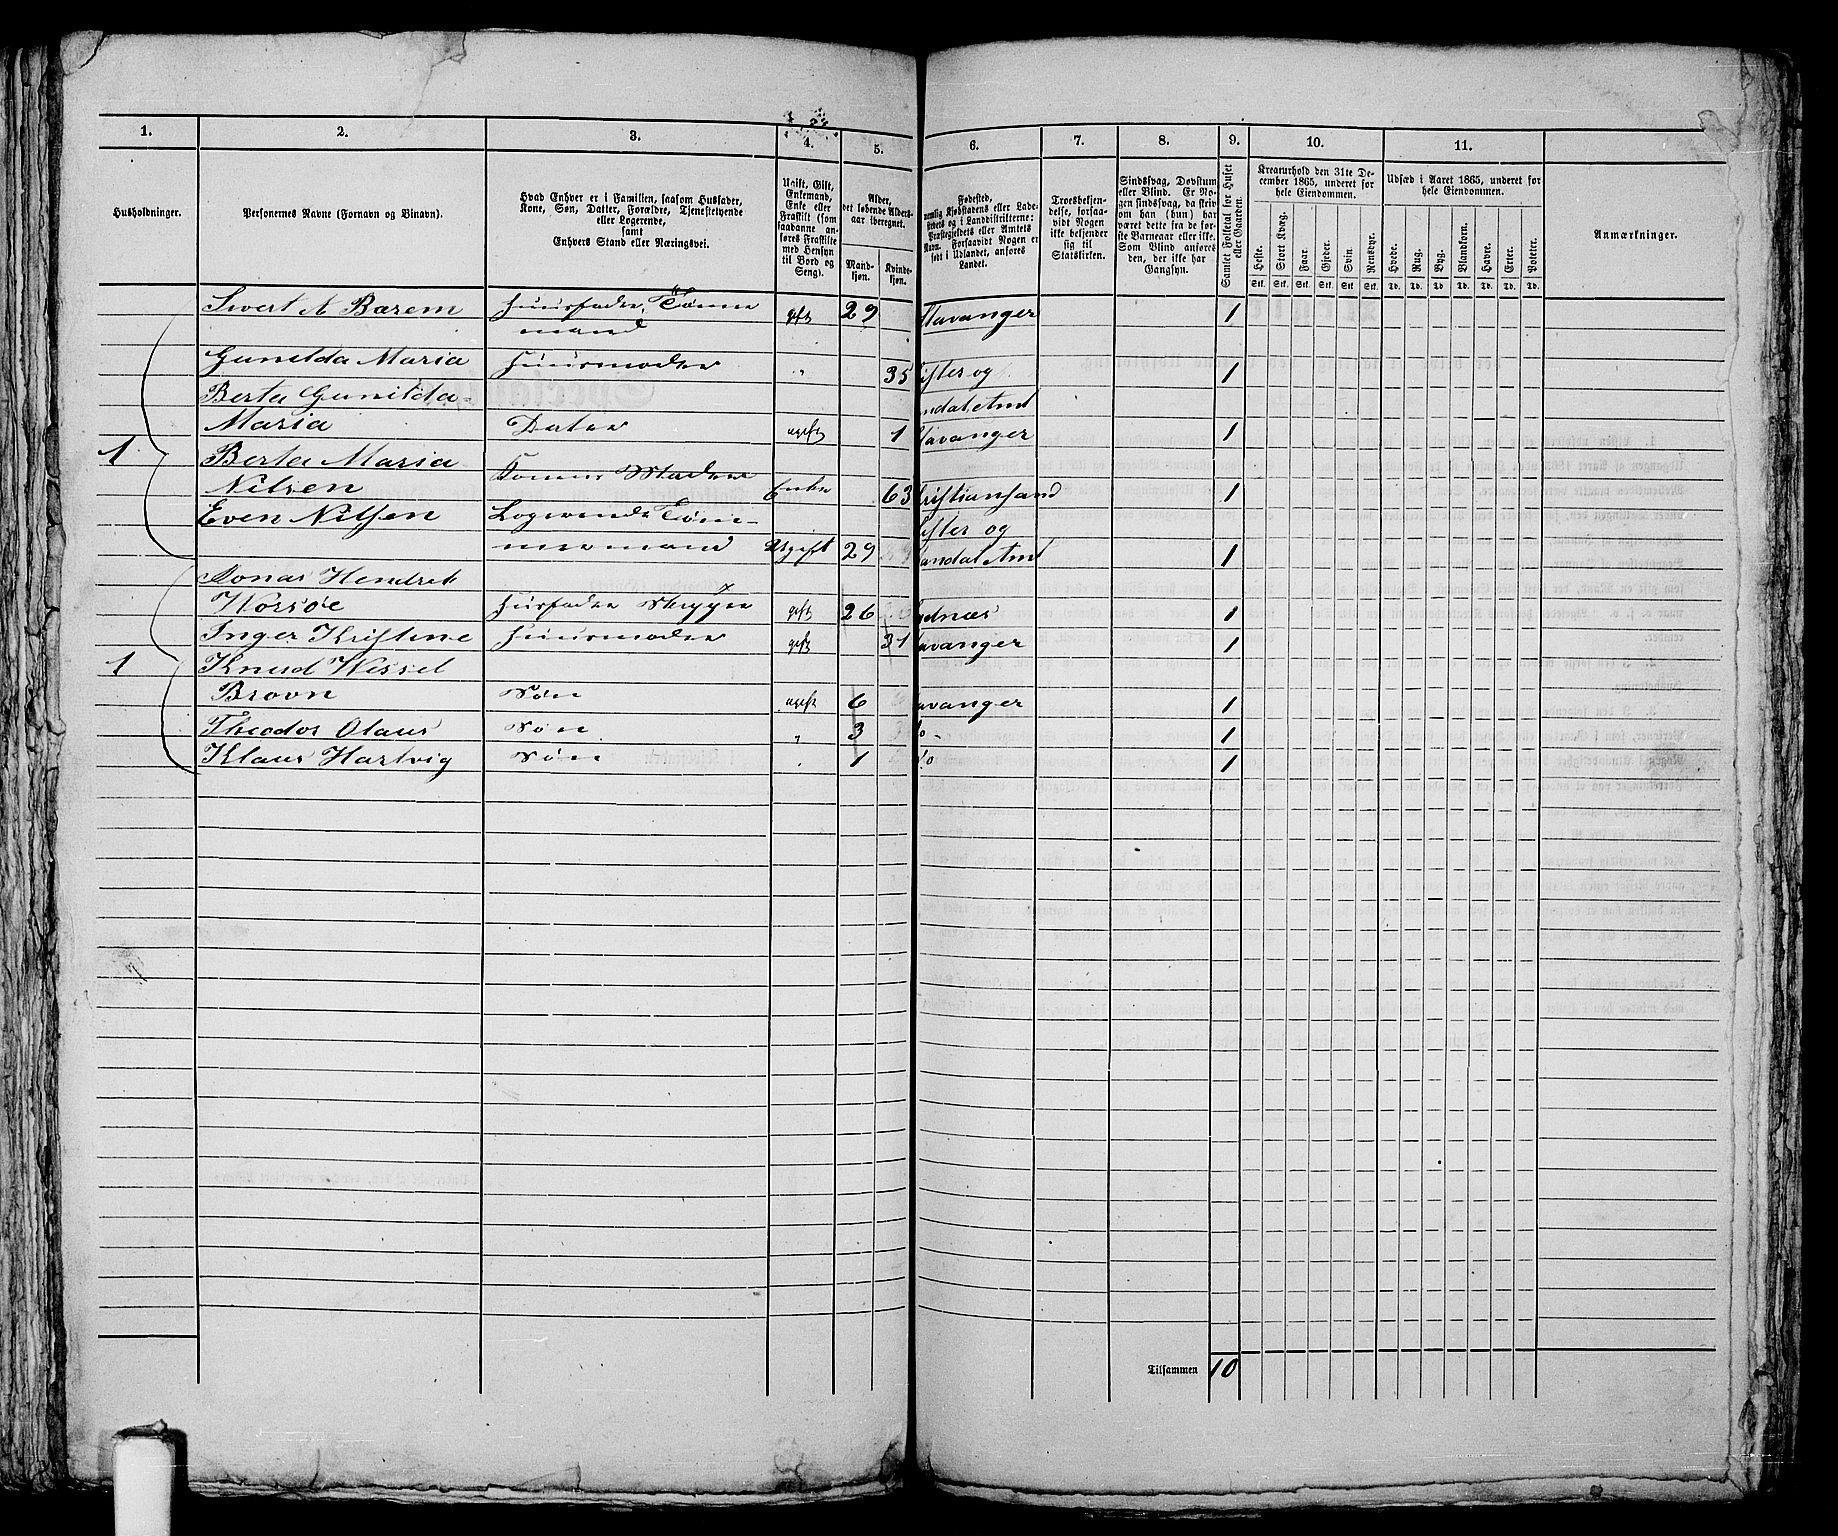 1. 2. 3. 4. 5. 6. 7. 8. 9. 10. 11.
Husholdninger.
Personernes Navne (Fornavn og Binavn).
Hvad Enhver er i Familien, saasom Husfader,
Kone, Søn, Datter, Forældre, Tjenestetyende
eller Logerende,
samt
Enhvers Stand eller Næringsvei.
Ugift, Gift,
Enkemand,
Enke eller
Fraskilt (som
saadanne an-
føres Fraskilte
med Hensyn
til Bord og
Seng).
Alder,
det løbende Alders-
aar iberegnet.
Mand-
kjøn.
Kvinde-
kjøn.
Fødested,
nemlig Kjøbstadens eller Lade-
stedets og i Landdistrikterne:
Præstegjeldets eller Amtets
Navn. Forsaavidt Nogen er
født i Udlandet, anføres
Landet.
Troesbekjen-
delse, forsaa-
vidt Nogen
ikke bekjender
sig til
Statskirken.
Sindssvag, Døvstum
eller Blind. Er No-
gen sindssvag, da skriv
om han (hun) har
været dette fra de før-
ste Barneaar eller ikke.
Som Blind anføres
den, der ikke har
Gangsyn.
Samlet Folketal for Huset
eller Gaarden.
Kreaturhold den 31te De-
cember 1865, underet for
hele Eiendommen.
Heste. Stort Kvæg. Faar. Gjeder. Svin. Rensdyr.
Stk. Stk. Stk. Stk. Stk. Stk.
Udsæd i Aaret 1865, underet for
hele Eiendommen.
Hvede. Rug. Byg. Blandkorn. Havre. Erter. Poteter.
Td. Td. Td. Td. Td. Td. Td.
Anmærkninger.
Sivert A Bærem Huusfader, Tømme gift 29 Stavanger 1
mand
Gunilda Maria Huusmoder " 35 Lister og 1
Berta Gunilda- Mandal Amt
Maria Dater ugift 1 Stavanger 1
1 Berta Maria
Nilsen Konens Moder Enke 63 Kristiansand 1
Even Nilsen Logerende Tøm- Lister og
mermand Ugift 29 Mandal Amt 1
Jonas Hendrik
Worsøe Husfader Skipper gift 26 1
Inger Kristine Huusmoder gift 31 Stavanger 1
1 Knud Wessel
Brovn Søn ugift 6 Stavanger 1
Theodor Olaus Søn " 3 do - 1
Klaus Hartvig Søn " 1 do 1
Tilsammen 10